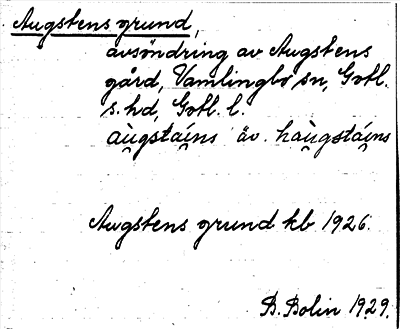 Augstens grund,
avsöndring av Augstens
gård, Vamlingbo sn, Gotl.
s. hd, Gotl. l.
àu̯gstái̯ns äv. hàu̯gstái̯ns
Augstens grund kb 1926.
B. Bolin 1929.